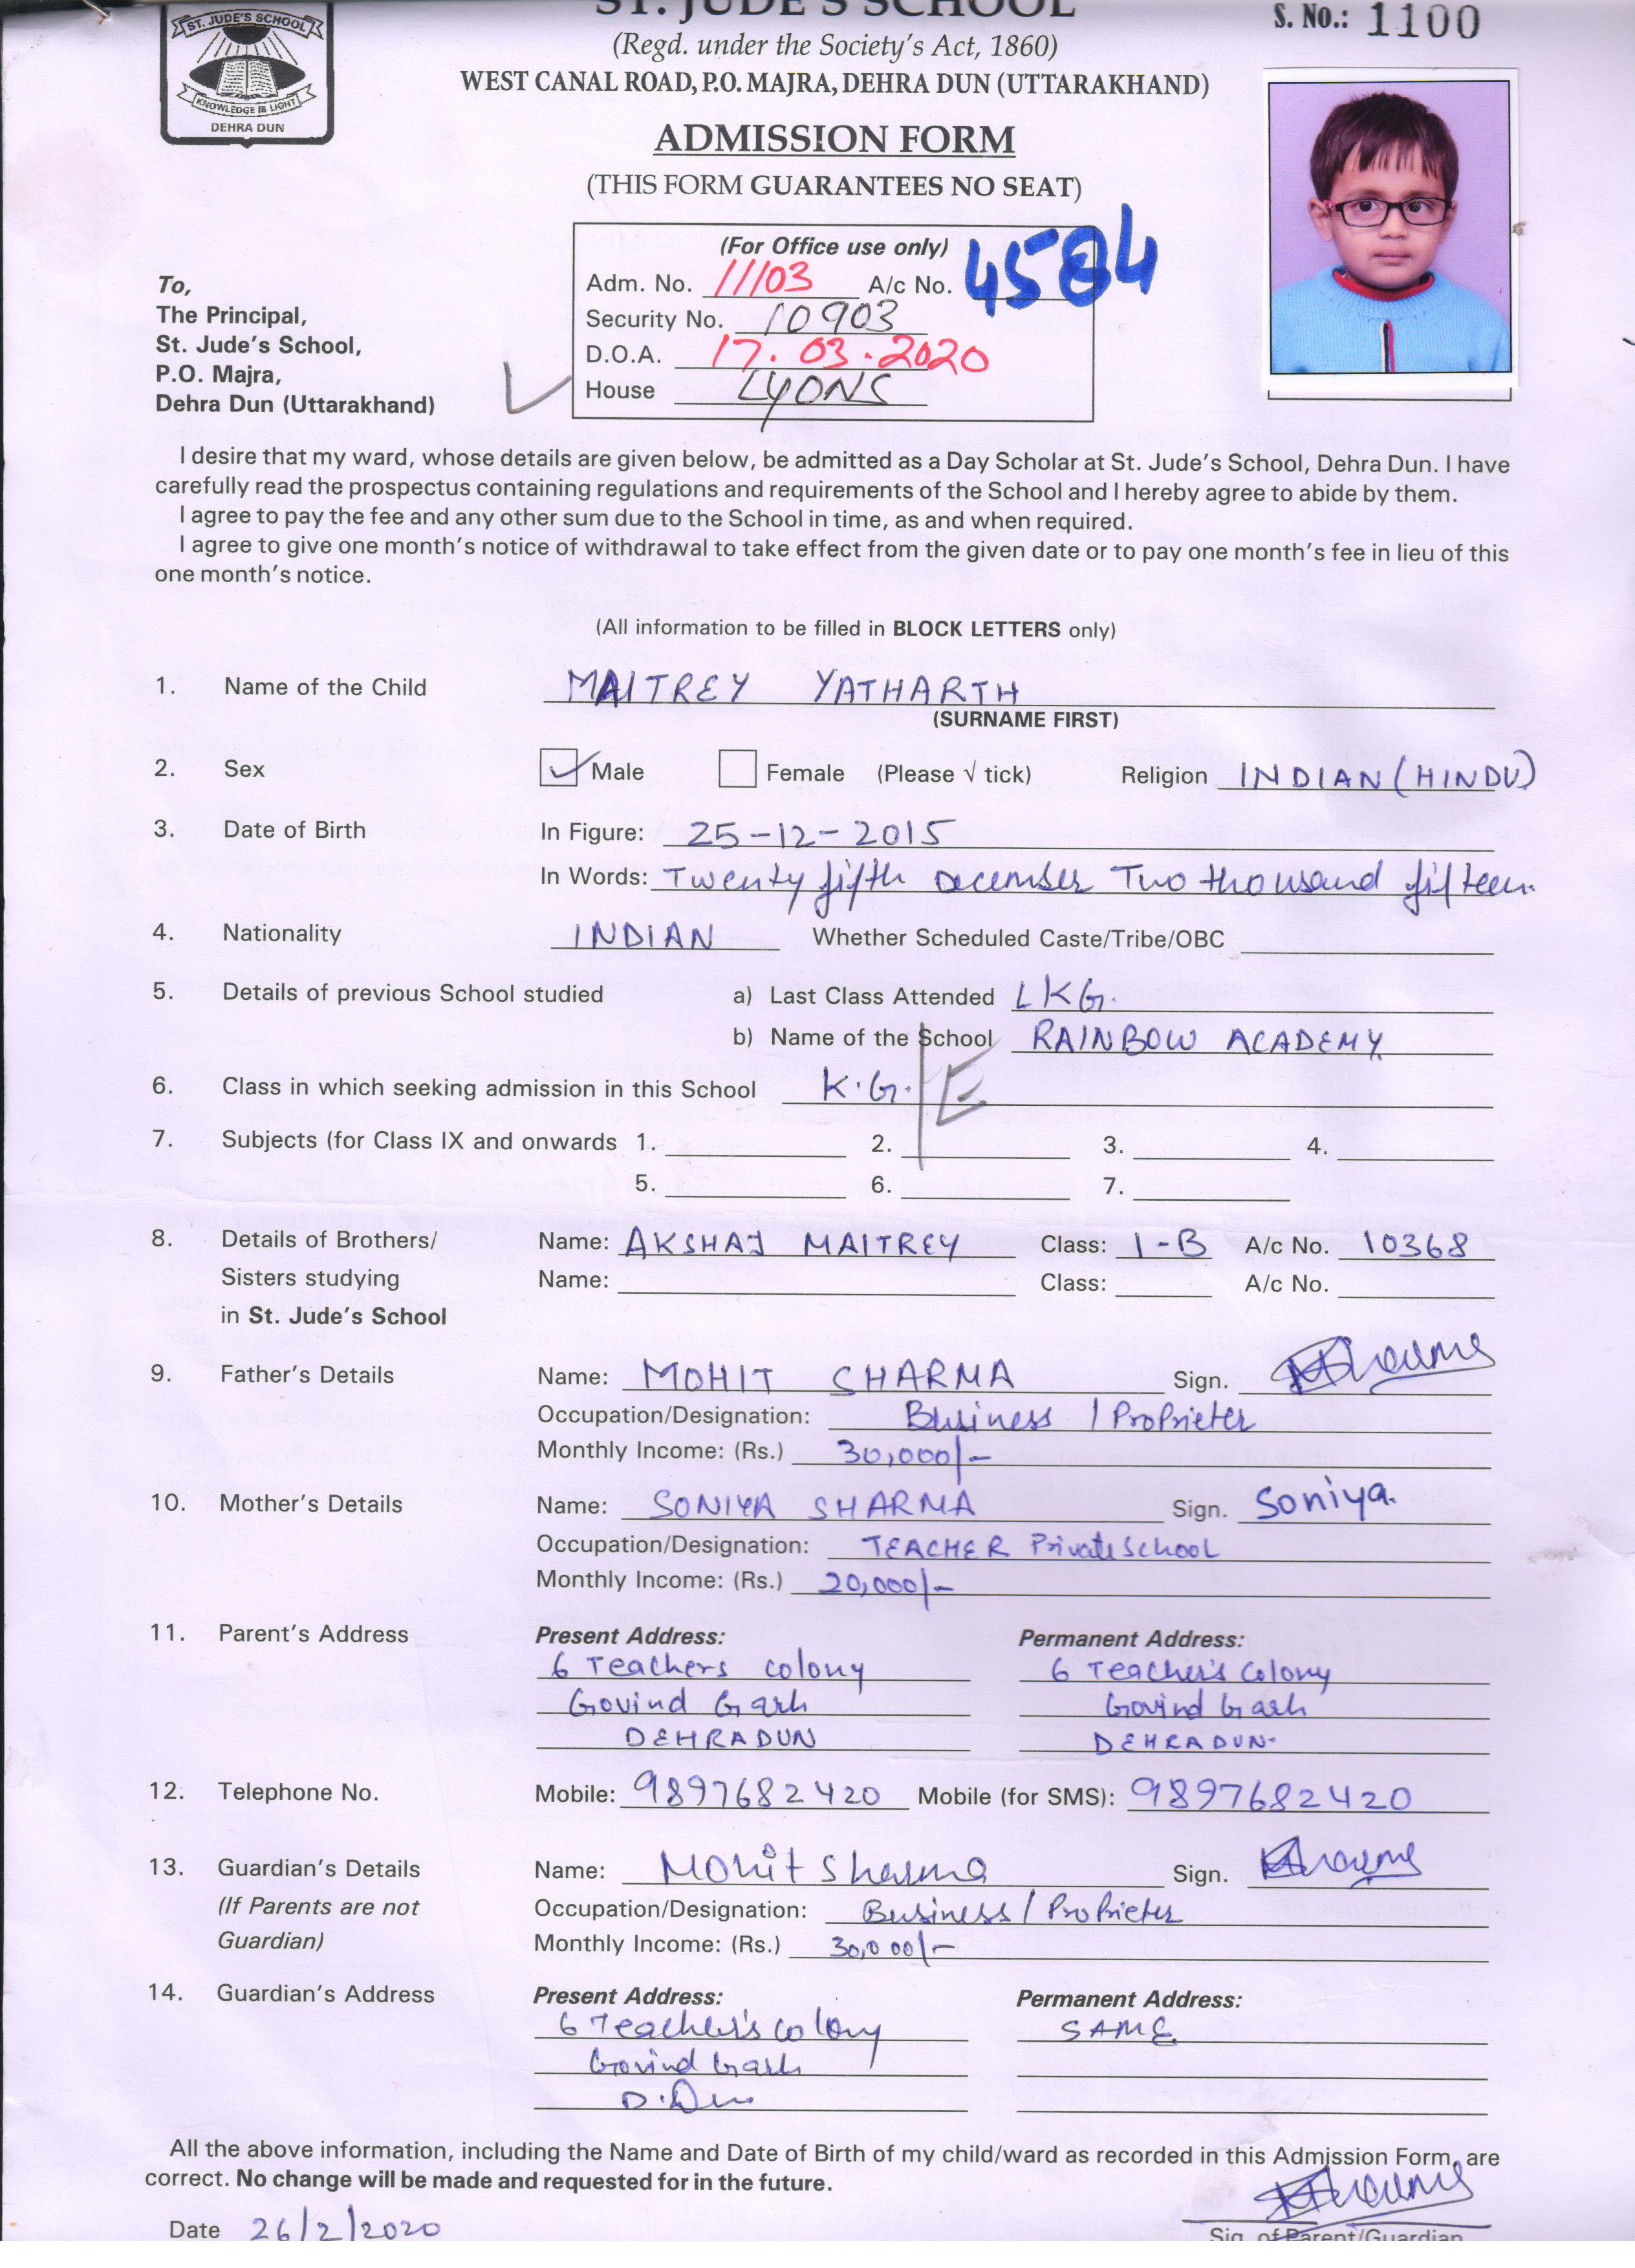 ST. JUDE'S SCHOOL
S. No.: 1100
ST. JUDE'S SCHOOL
KNOWLEDGE IS LIGHT
DEHRA DUN
(Regd. under the Society's Act, 1860)
WEST CANAL ROAD, P.O. MAJRA, DEHRA DUN (UTTARAKHAND)
ADMISSION FORM
(THIS FORM GUARANTEES NO SEAT)
(For Office use only)
Adm. No. 11103 A/c No. 4584
Security No. 10903
D.O.A. 17.03.2020
House LYONS
To,
The Principal,
St. Jude's School,
P.O. Majra,
Dehra Dun (Uttarakhand)
I desire that my ward, whose details are given below, be admitted as a Day Scholar at St. Jude's School, Dehra Dun. I have
carefully read the prospectus containing regulations and requirements of the School and I hereby agree to abide by them.
I agree to pay the fee and any other sum due to the School in time, as and when required.
I agree to give one month's notice of withdrawal to take effect from the given date or to pay one month's fee in lieu of this
one month's notice.
(All information to be filled in BLOCK LETTERS only)
1. Name of the Child MAITREY YATHARTH
(SURNAME FIRST)
2. Sex Male Female (Please √ tick) Religion INDIAN (HINDU)
3. Date of Birth In Figure: 25-12-2015
In Words: Twenty fifth December Two thousand fifteen.
4. Nationality INDIAN Whether Scheduled Caste/Tribe/OBC
5. Details of previous School studied a) Last Class Attended LKG.
b) Name of the School RAINBOW ACADEMY
6. Class in which seeking admission in this School K.G. E
7. Subjects (for Class IX and onwards 1. 2. 3. 4.
5. 6. 7.
8. Details of Brothers/ Name: AKSHAJ MAITREY Class: I-B A/c No. 10368
Sisters studying Name: Class: A/c No.
in St. Jude's School
9. Father's Details Name: MOHIT SHARMA Sign.
Occupation/Designation: Business / Proprieter
Monthly Income: (Rs.) 30,000/-
10. Mother's Details Name: SONIYA SHARMA Sign. Soniya.
Occupation/Designation: TEACHER Private School
Monthly Income: (Rs.) 20,000/-
11. Parent's Address Present Address: Permanent Address:
6 Teachers colony 6 Teacher's Colony
Govind Garh Govind Garh
DEHRADUN DEHRADUN.
12. Telephone No. Mobile: 9897682420 Mobile (for SMS): 9897682420
13. Guardian's Details Name: Mohit Sharma Sign.
(If Parents are not Occupation/Designation: Business / Proprieter
Guardian) Monthly Income: (Rs.) 30,000/-
14. Guardian's Address Present Address: Permanent Address:
6 Teacher's colony SAME
Govind Garh
D.Dun
All the above information, including the Name and Date of Birth of my child/ward as recorded in this Admission Form, are
correct. No change will be made and requested for in the future.
Date 26/2/2020
Sig. of Parent/Guardian